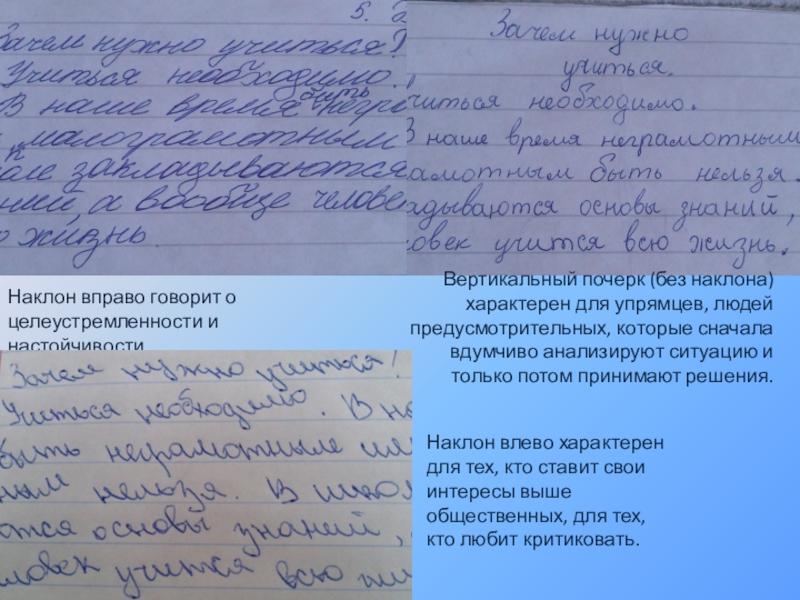 5.
Зачем нужно учиться?
Учиться необходимо.
быть
В наше время негра
малограмотным
к
оле закладываются
ний, а вообще челове
ю жизнь.
Зачем нужно
учиться.
читься необходимо.
В наше время неграмотным
амотным быть нельзя.
адываются основы знаний,
ловек учится всю жизнь.
Наклон вправо говорит о
целеустремленности и
настойчивости
Вертикальный почерк (без наклона)
характерен для упрямцев, людей
предусмотрительных, которые сначала
вдумчиво анализируют ситуацию и
только потом принимают решения.
Зачем нужно учиться!
Учиться необходимо. В на
быть неграмотные или
ным нельзя. В школ
ются основы знаний,
ловек учится всю жи
Наклон влево характерен
для тех, кто ставит свои
интересы выше
общественных, для тех,
кто любит критиковать.